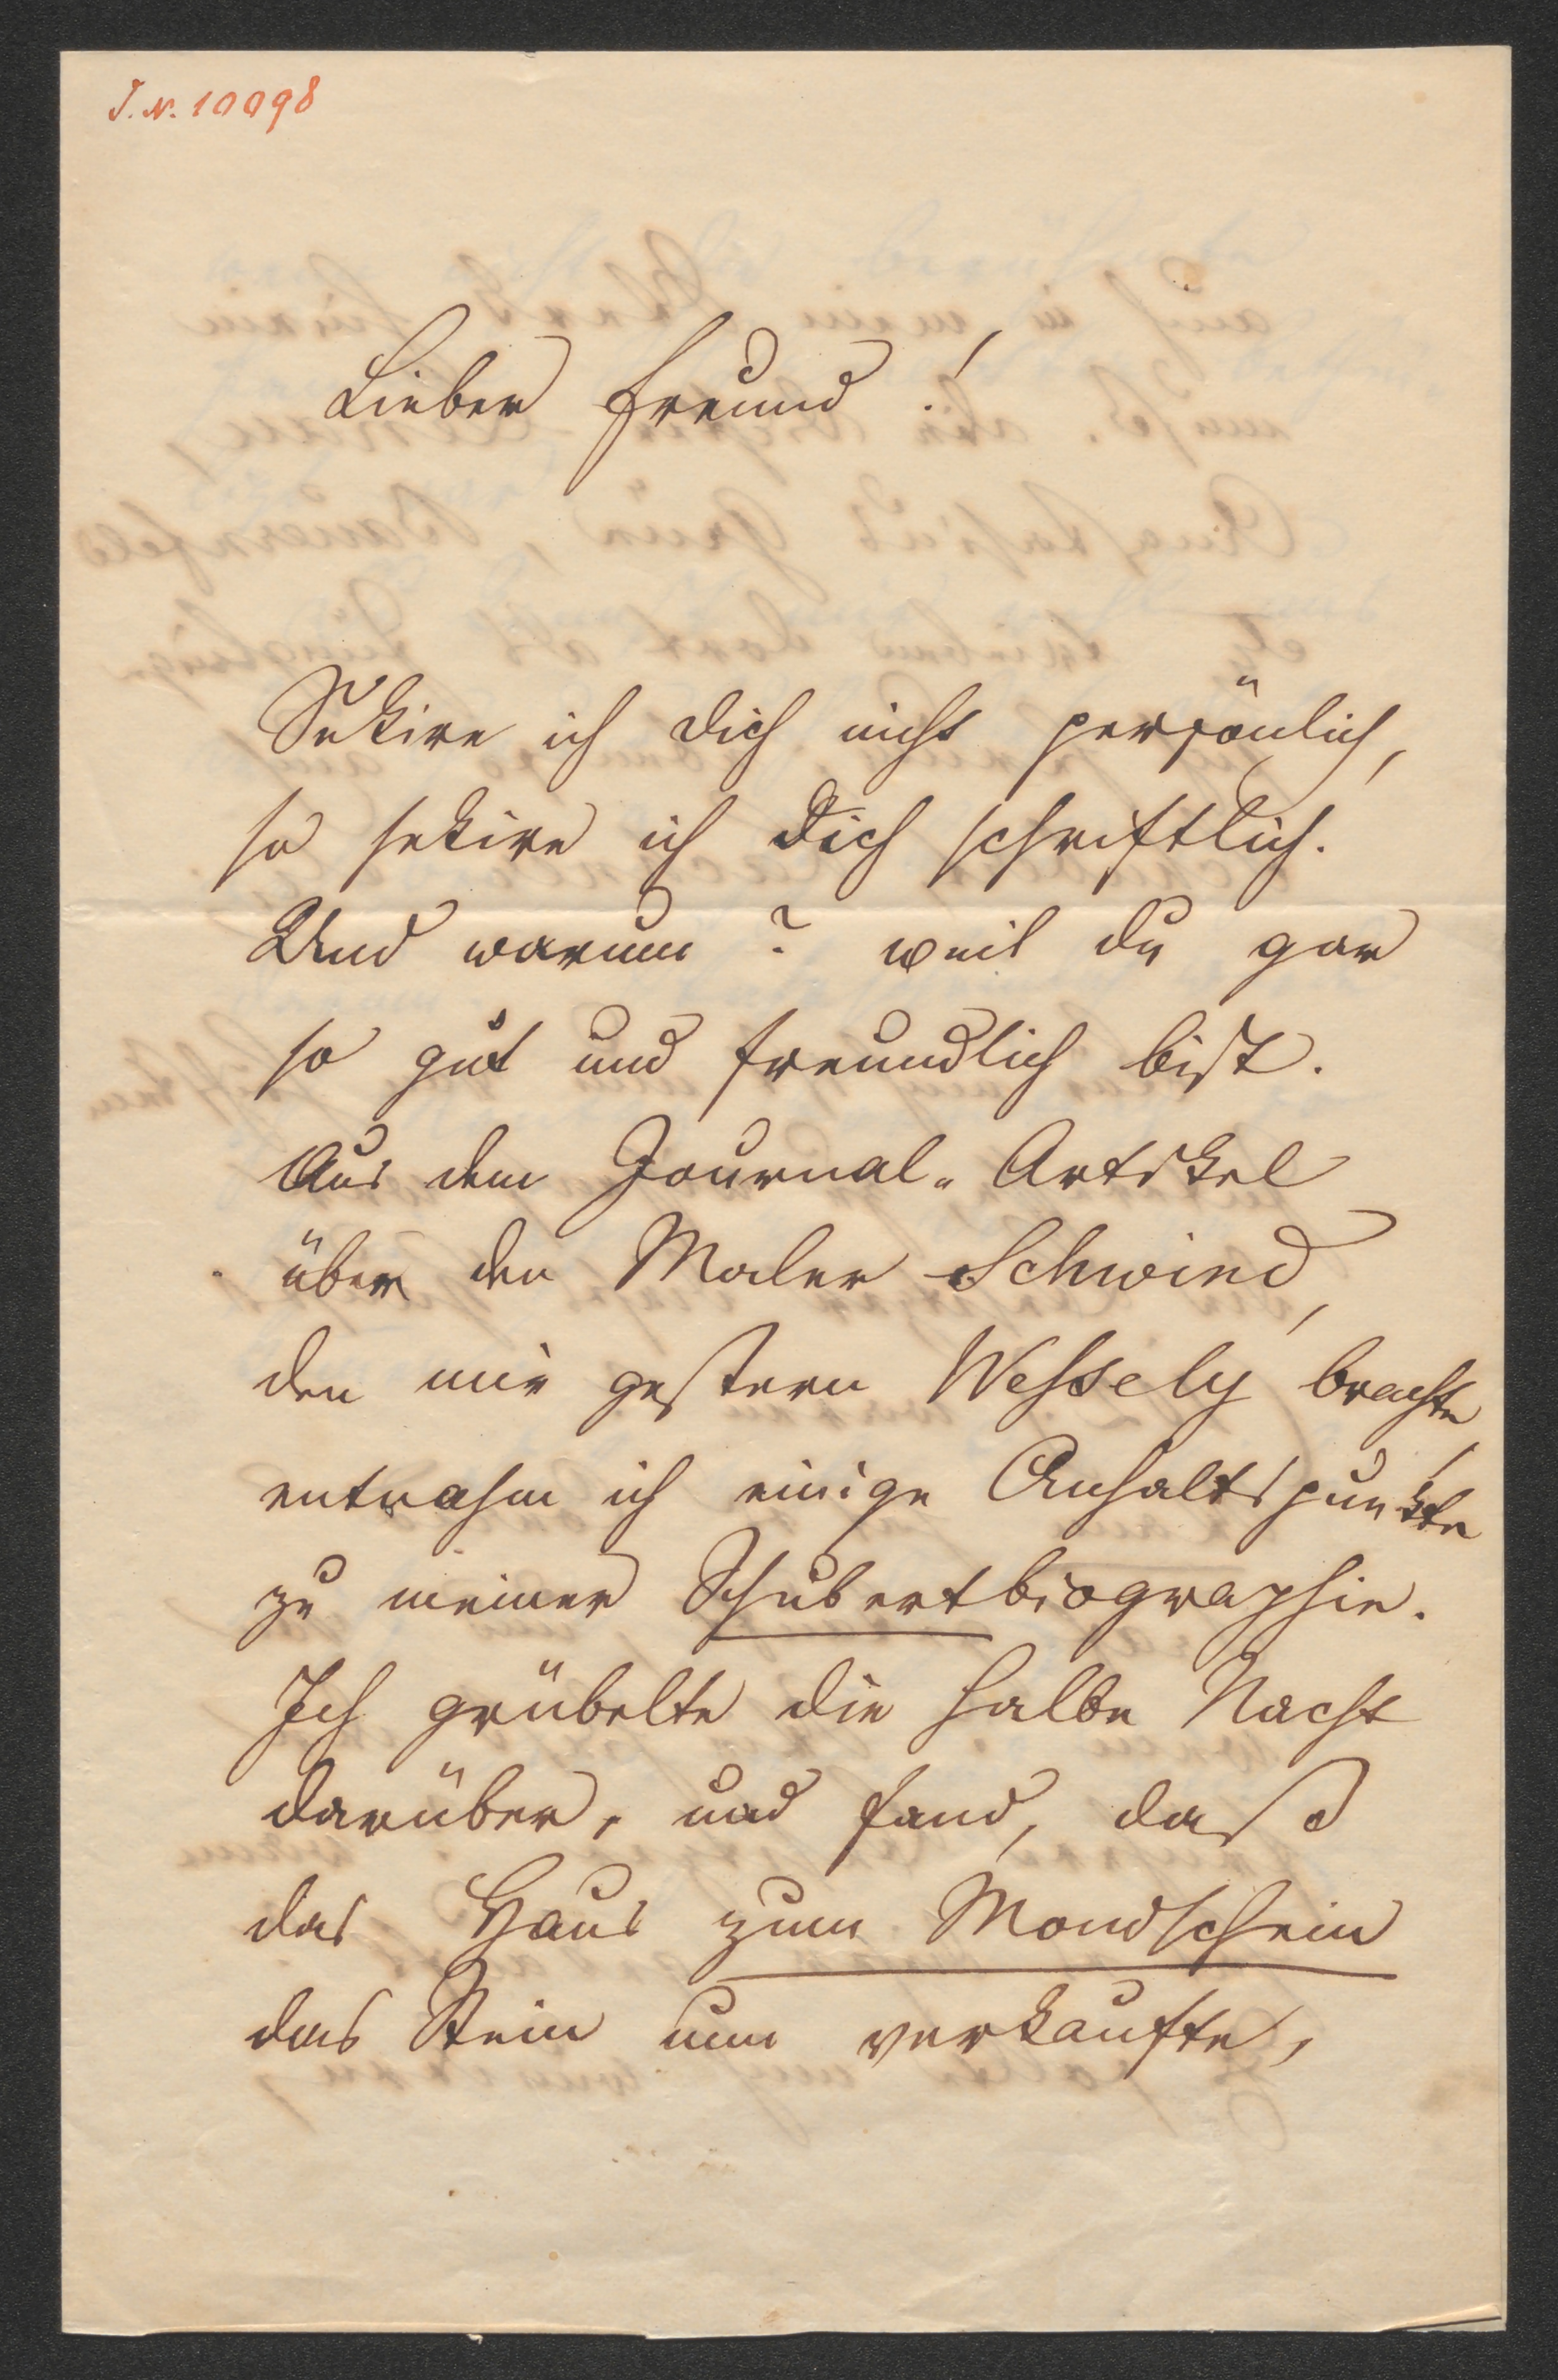 J.N. 10098
Lieber Freund!
Sekire ich dich nicht persönlich,
so sekire ich dich schriftlich.
Und warum? weil du gar
so gut und freundlich bist.
Aus dem Journal-Artikel
über den Maler Schwind,
den mir gestern Wessely brachte,
entnahm ich einige Anhaltspunkte
zu meiner Schubertbiographie.
Ich grübelte die halbe Nacht
darüber, und fand, daß
das Haus zum Mondschein
das Stein nun verkaufte,